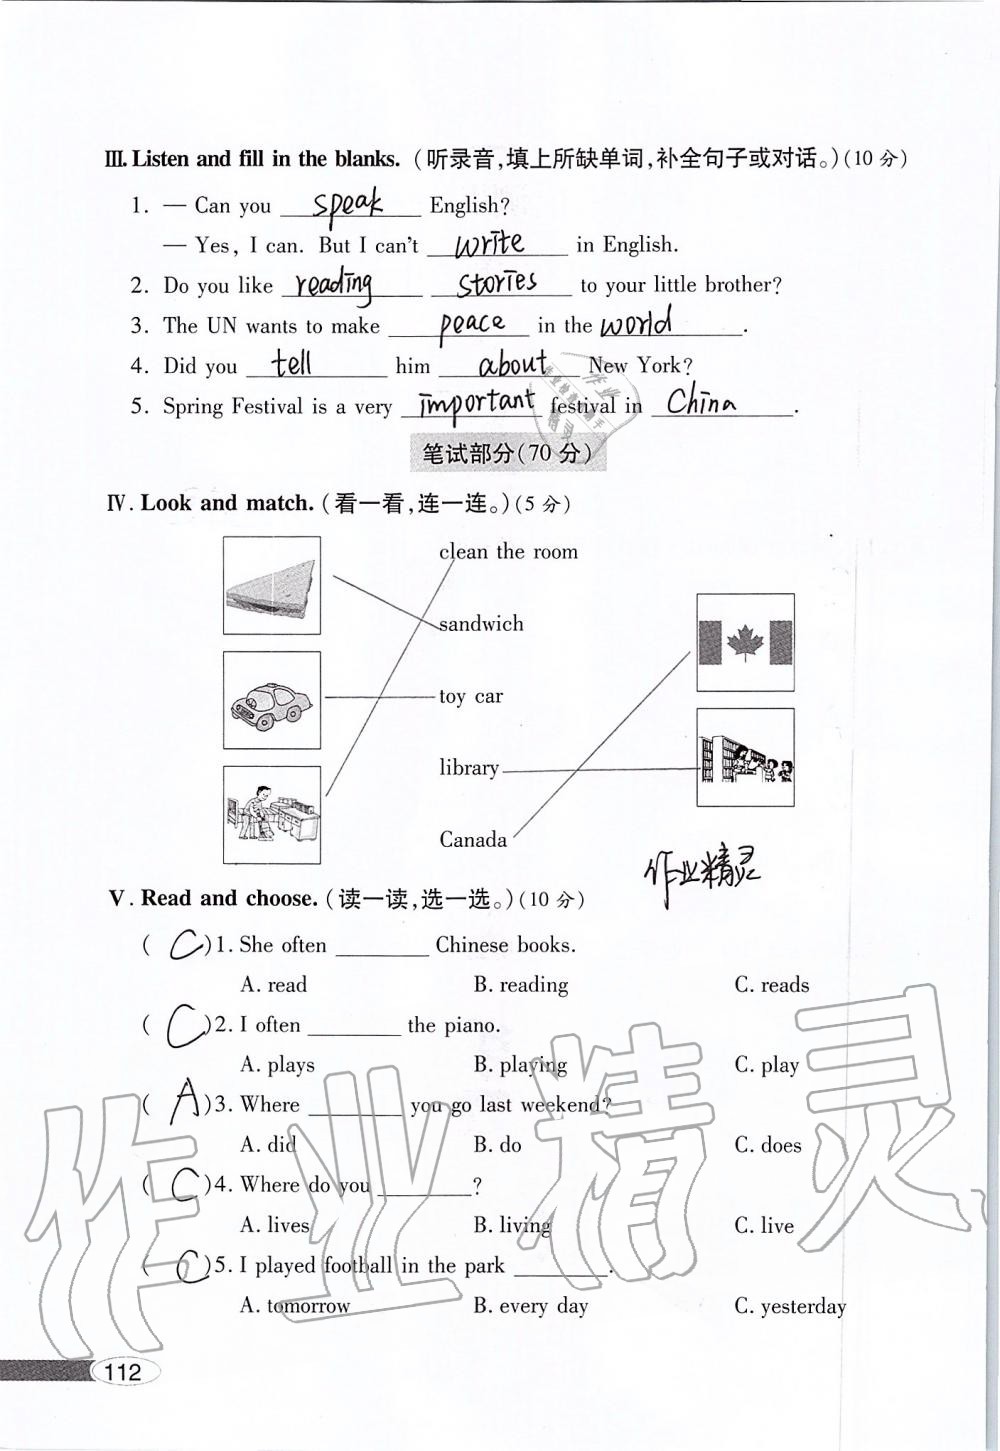 Ⅲ. Listen and fill in the blanks. (听录音,填上所缺单词,补全句子或对话。)(10 分)
1. — Can you speak English?
— Yes, I can. But I can't write in English.
2. Do you like reading stories to your little brother?
3. The UN wants to make peace in the world.
4. Did you tell him about New York?
5. Spring Festival is a very important festival in China.
笔试部分(70 分)
Ⅳ. Look and match. (看一看,连一连。)(5 分)
clean the room
sandwich
toy car
library
Canada
作业精灵
Ⅴ. Read and choose. (读一读,选一选。)(10 分)
( C )1. She often ________ Chinese books.
A. read B. reading C. reads
( C )2. I often ________ the piano.
A. plays B. playing C. play
( A )3. Where ________ you go last weekend?
A. did B. do C. does
( C )4. Where do you ________?
A. lives B. living C. live
( C )5. I played football in the park ________.
A. tomorrow B. every day C. yesterday
作业精灵
112